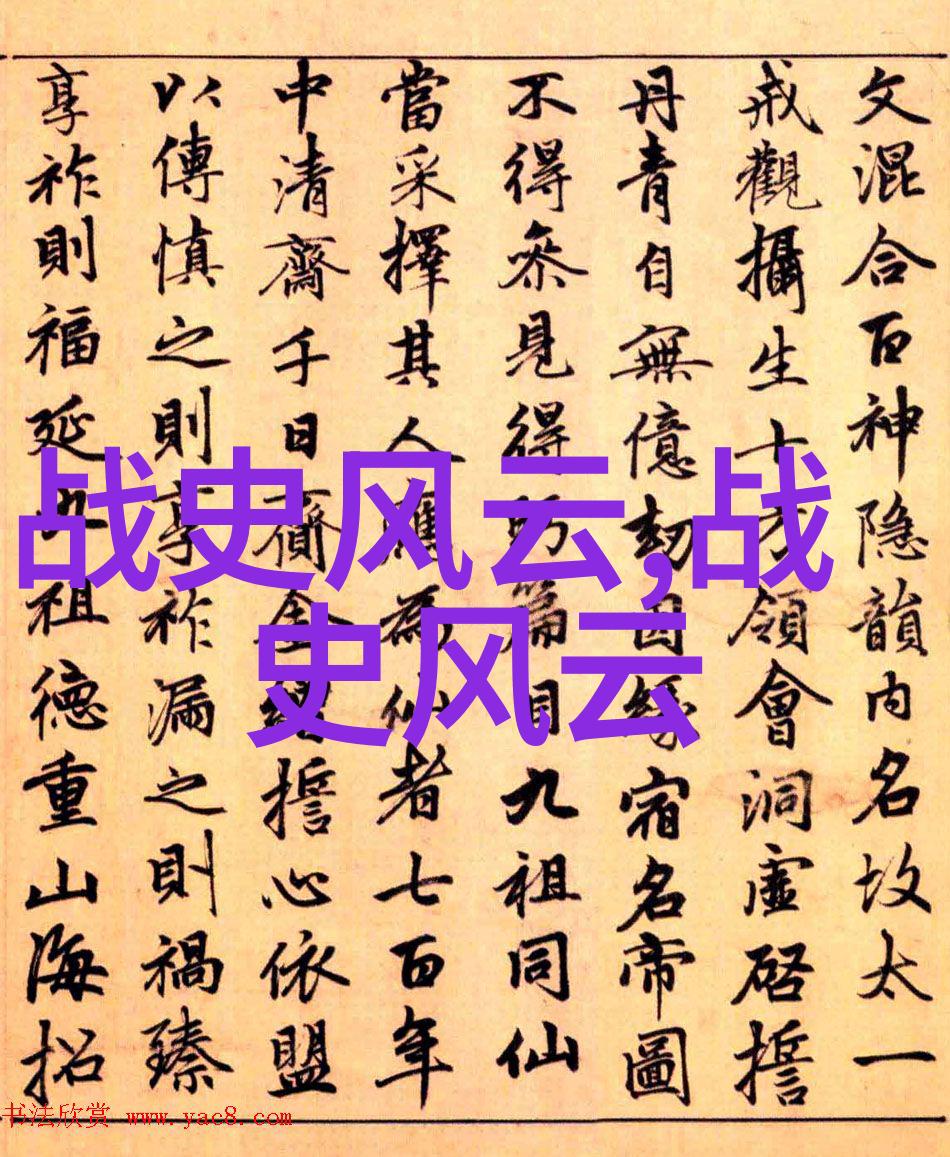 文混合百神隐韻内名故太一
戒觀攝生十方領會洞虚啓誓
丹青自無億劫因緣宿名帝圖
不得叅見得功篇目九祖同仙
當采擇其人應為仙者七百年
中清齋千日齎金繒誓心依盟
以傳慎之則享祚漏之則禍臻
享祚則福延七祖德重山海招
战史风云,战
史风云
书法欣赏 www.yac8.com